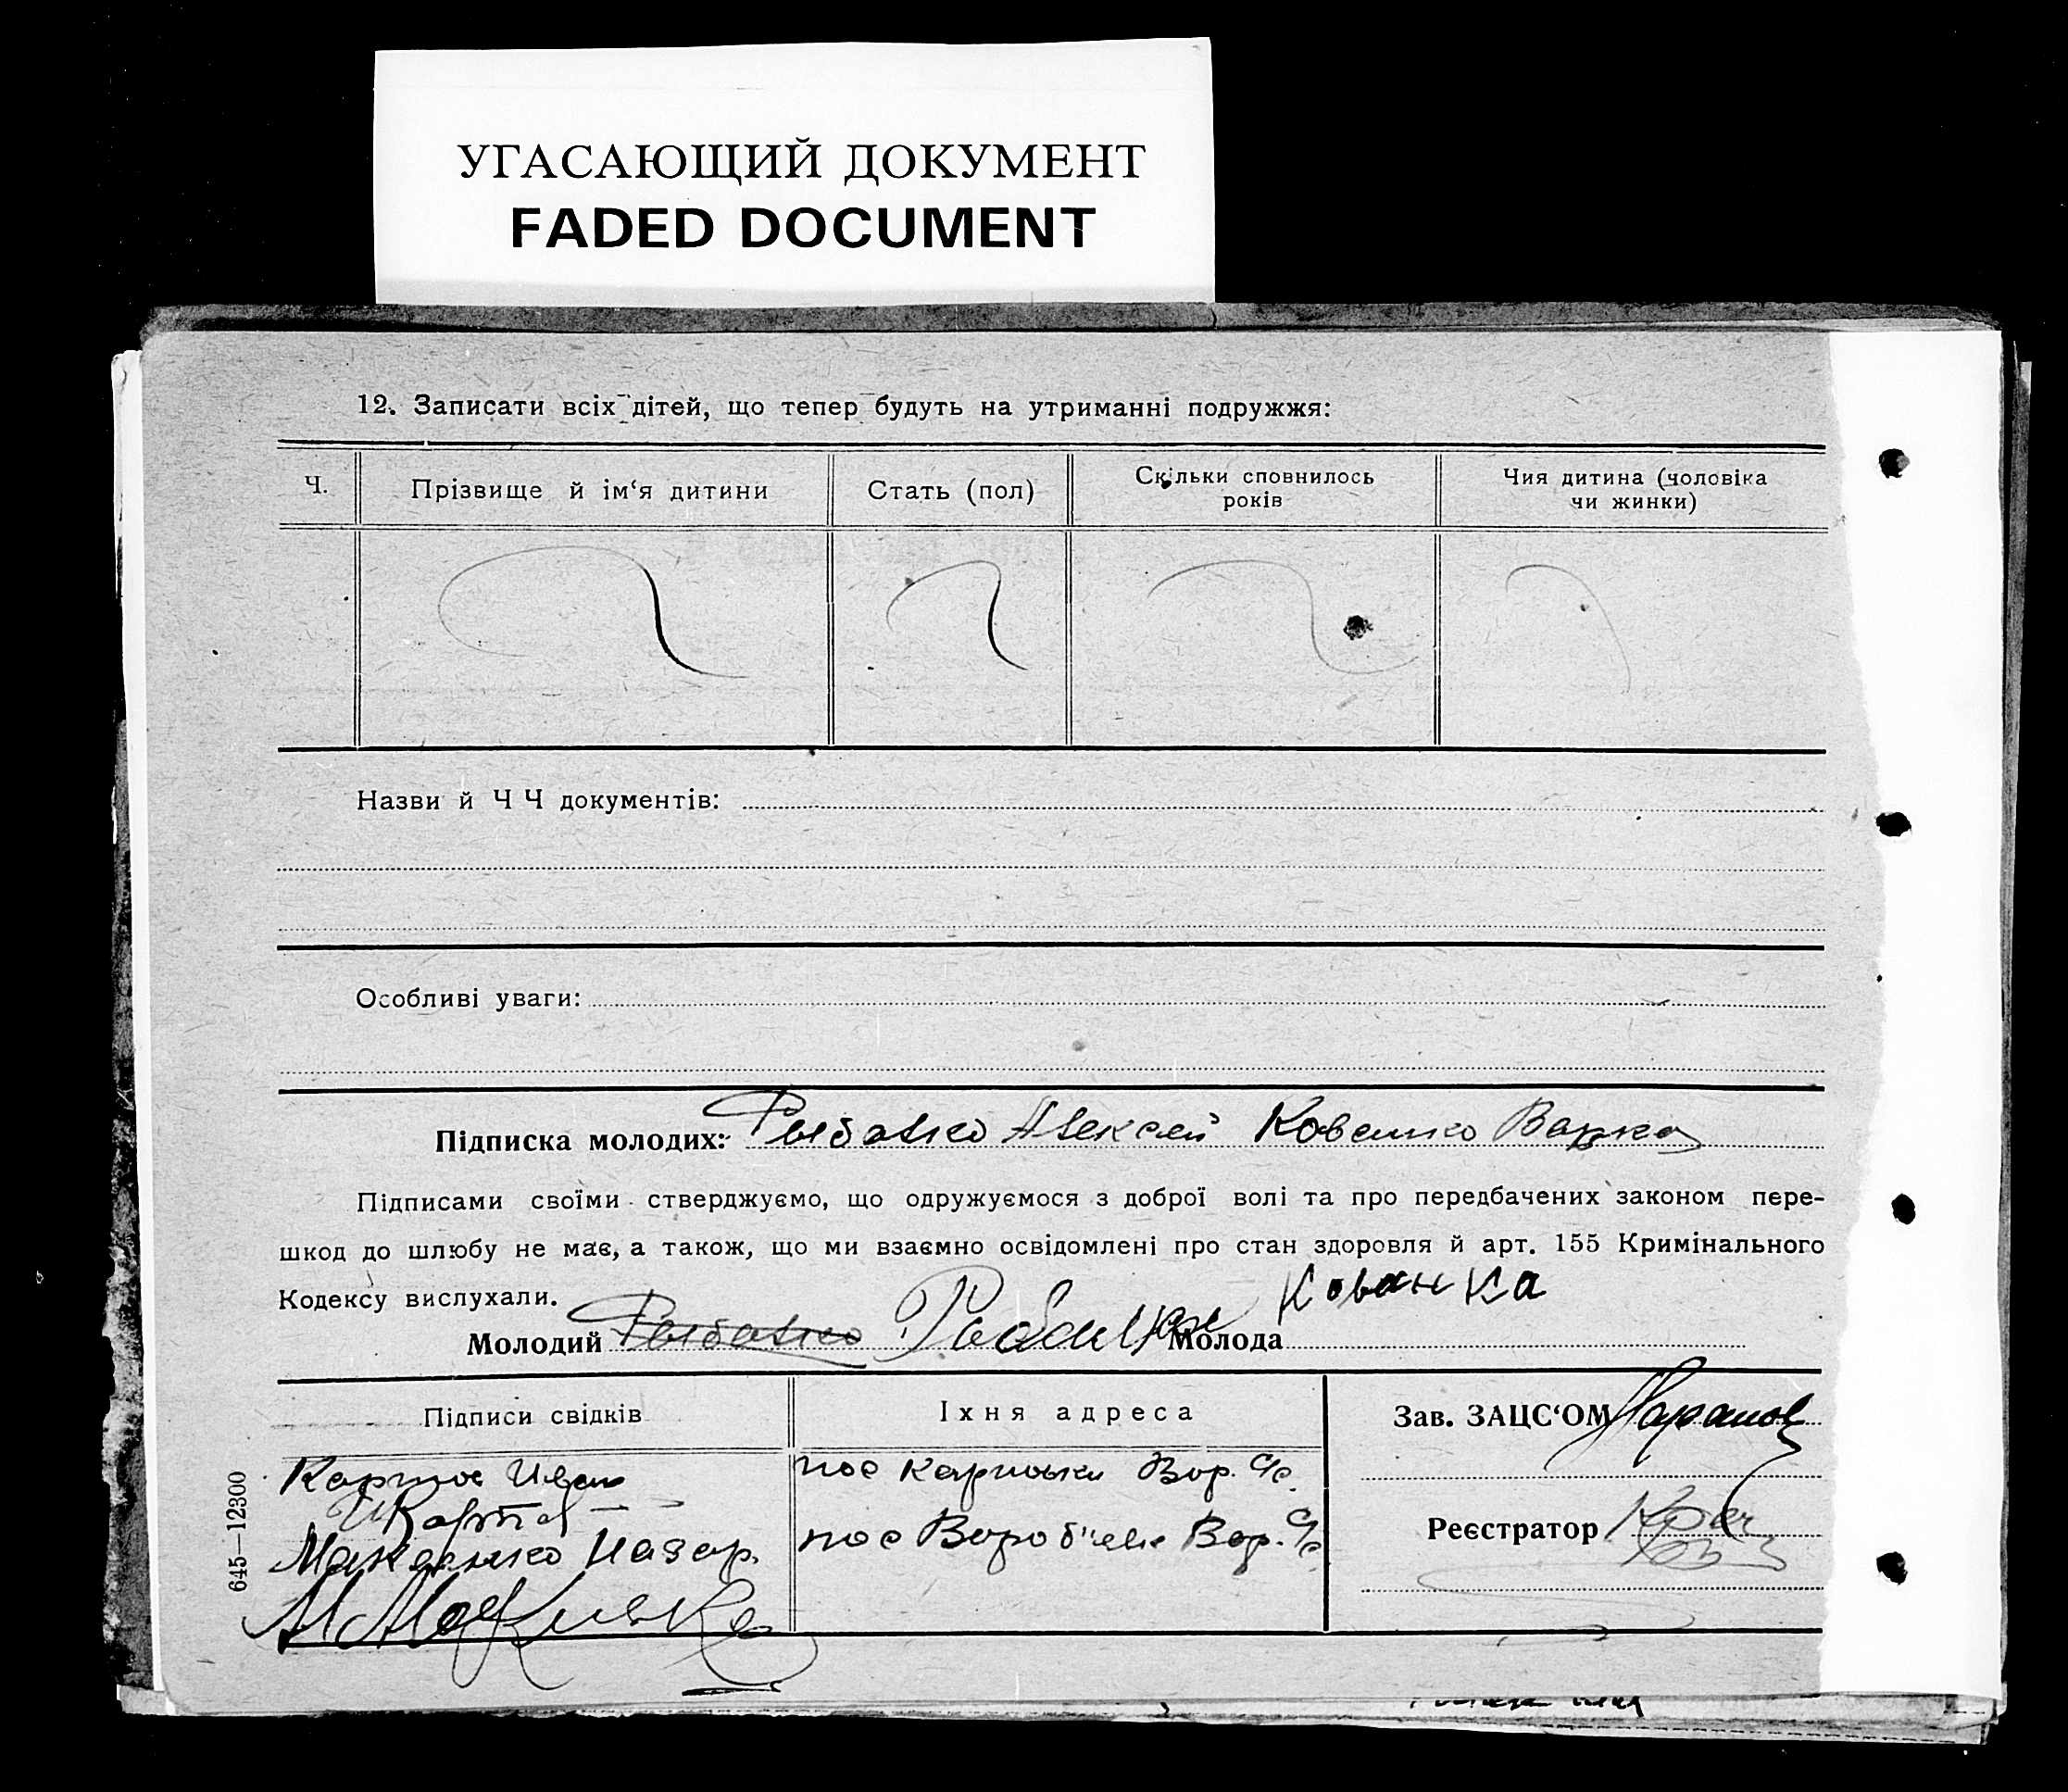 УГАСАЮЩИЙ ДОКУМЕНТ
FADED DOCUMENT
12. Записати всіх дітей, що тепер будуть на утриманні подружжя:
Ч.
Прізвище й ім‘я дитини
Стать (пол)
Скільки сповнилось
років
Чия дитина (чоловіка
чи жинки)
Назви й Ч Ч документів:
Особливі уваги:
Підписка молодих: Рыбалко Алексей Коваленко Варка
Підписами своїми стверджуємо, що одружуємося з доброї волі та про передбачених законом пере-
шкод до шлюбу не має, а також, що ми взаємно освідомлені про стан здоровля й арт. 155 Кримінального
Кодексу вислухали.
Молодий Рыбалко Молода Кованка
Підписи свідків
Їхня адреса
Зав. ЗАЦС‘ОМ
Иван
пос Вор. С/с
Реєстратор
Назар.
пос Вороб'ева Вор. С/с
645—12300